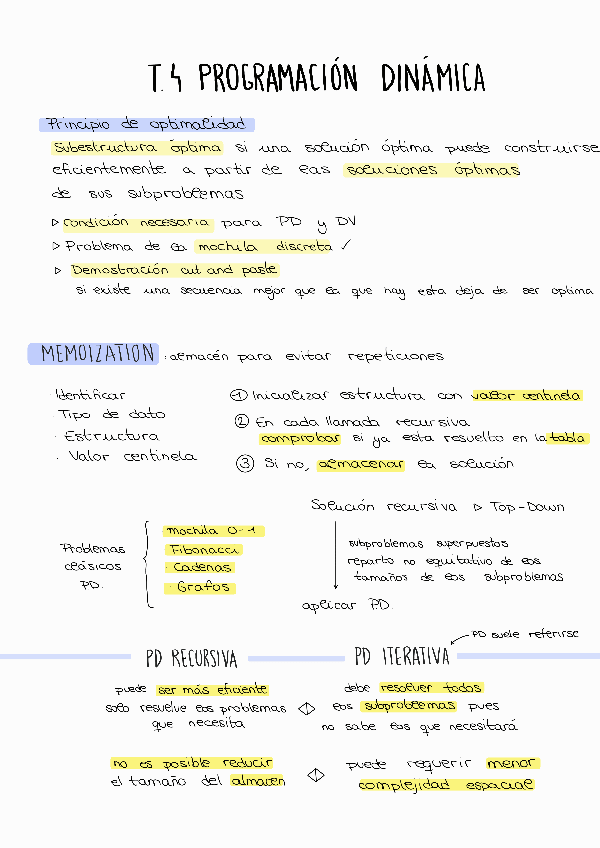 T.4 PROGRAMACIÓN DINÁMICA
Principio de optimalidad
Subestructura óptima si una solución óptima puede construirse
eficientemente a partir de las soluciones óptimas
de sus subproblemas
▷ condición necesaria para PD y DV
▷ Problema de la mochila discreta ✓
▷ Demostración cut and paste
si existe una secuencia mejor que la que hay esta deja de ser optima
MEMOIZATION : almacén para evitar repeticiones
· Identificar
· Tipo de dato
· Estructura
· Valor centinela
① Inicializar estructura con valor centinela
② En cada llamada recursiva
comprobar si ya esta resuelto en la tabla
③ Si no, almacenar la solución
Problemas
clásicos
PD.
· mochila 0-1
· Fibonacci
· Cadenas
· Grafos
Solución recursiva ▷ Top-Down
subproblemas superpuestos
reparto no equitativo de los
tamaños de los subproblemas
aplicar PD.
PD suele referirse
PD RECURSIVA
PD ITERATIVA
puede ser más eficiente
solo resuelve los problemas
que necesita
debe resolver todos
los subproblemas pues
no sabe los que necesitará
no es posible reducir
el tamaño del almacen
puede requerir menor
complejidad espacial